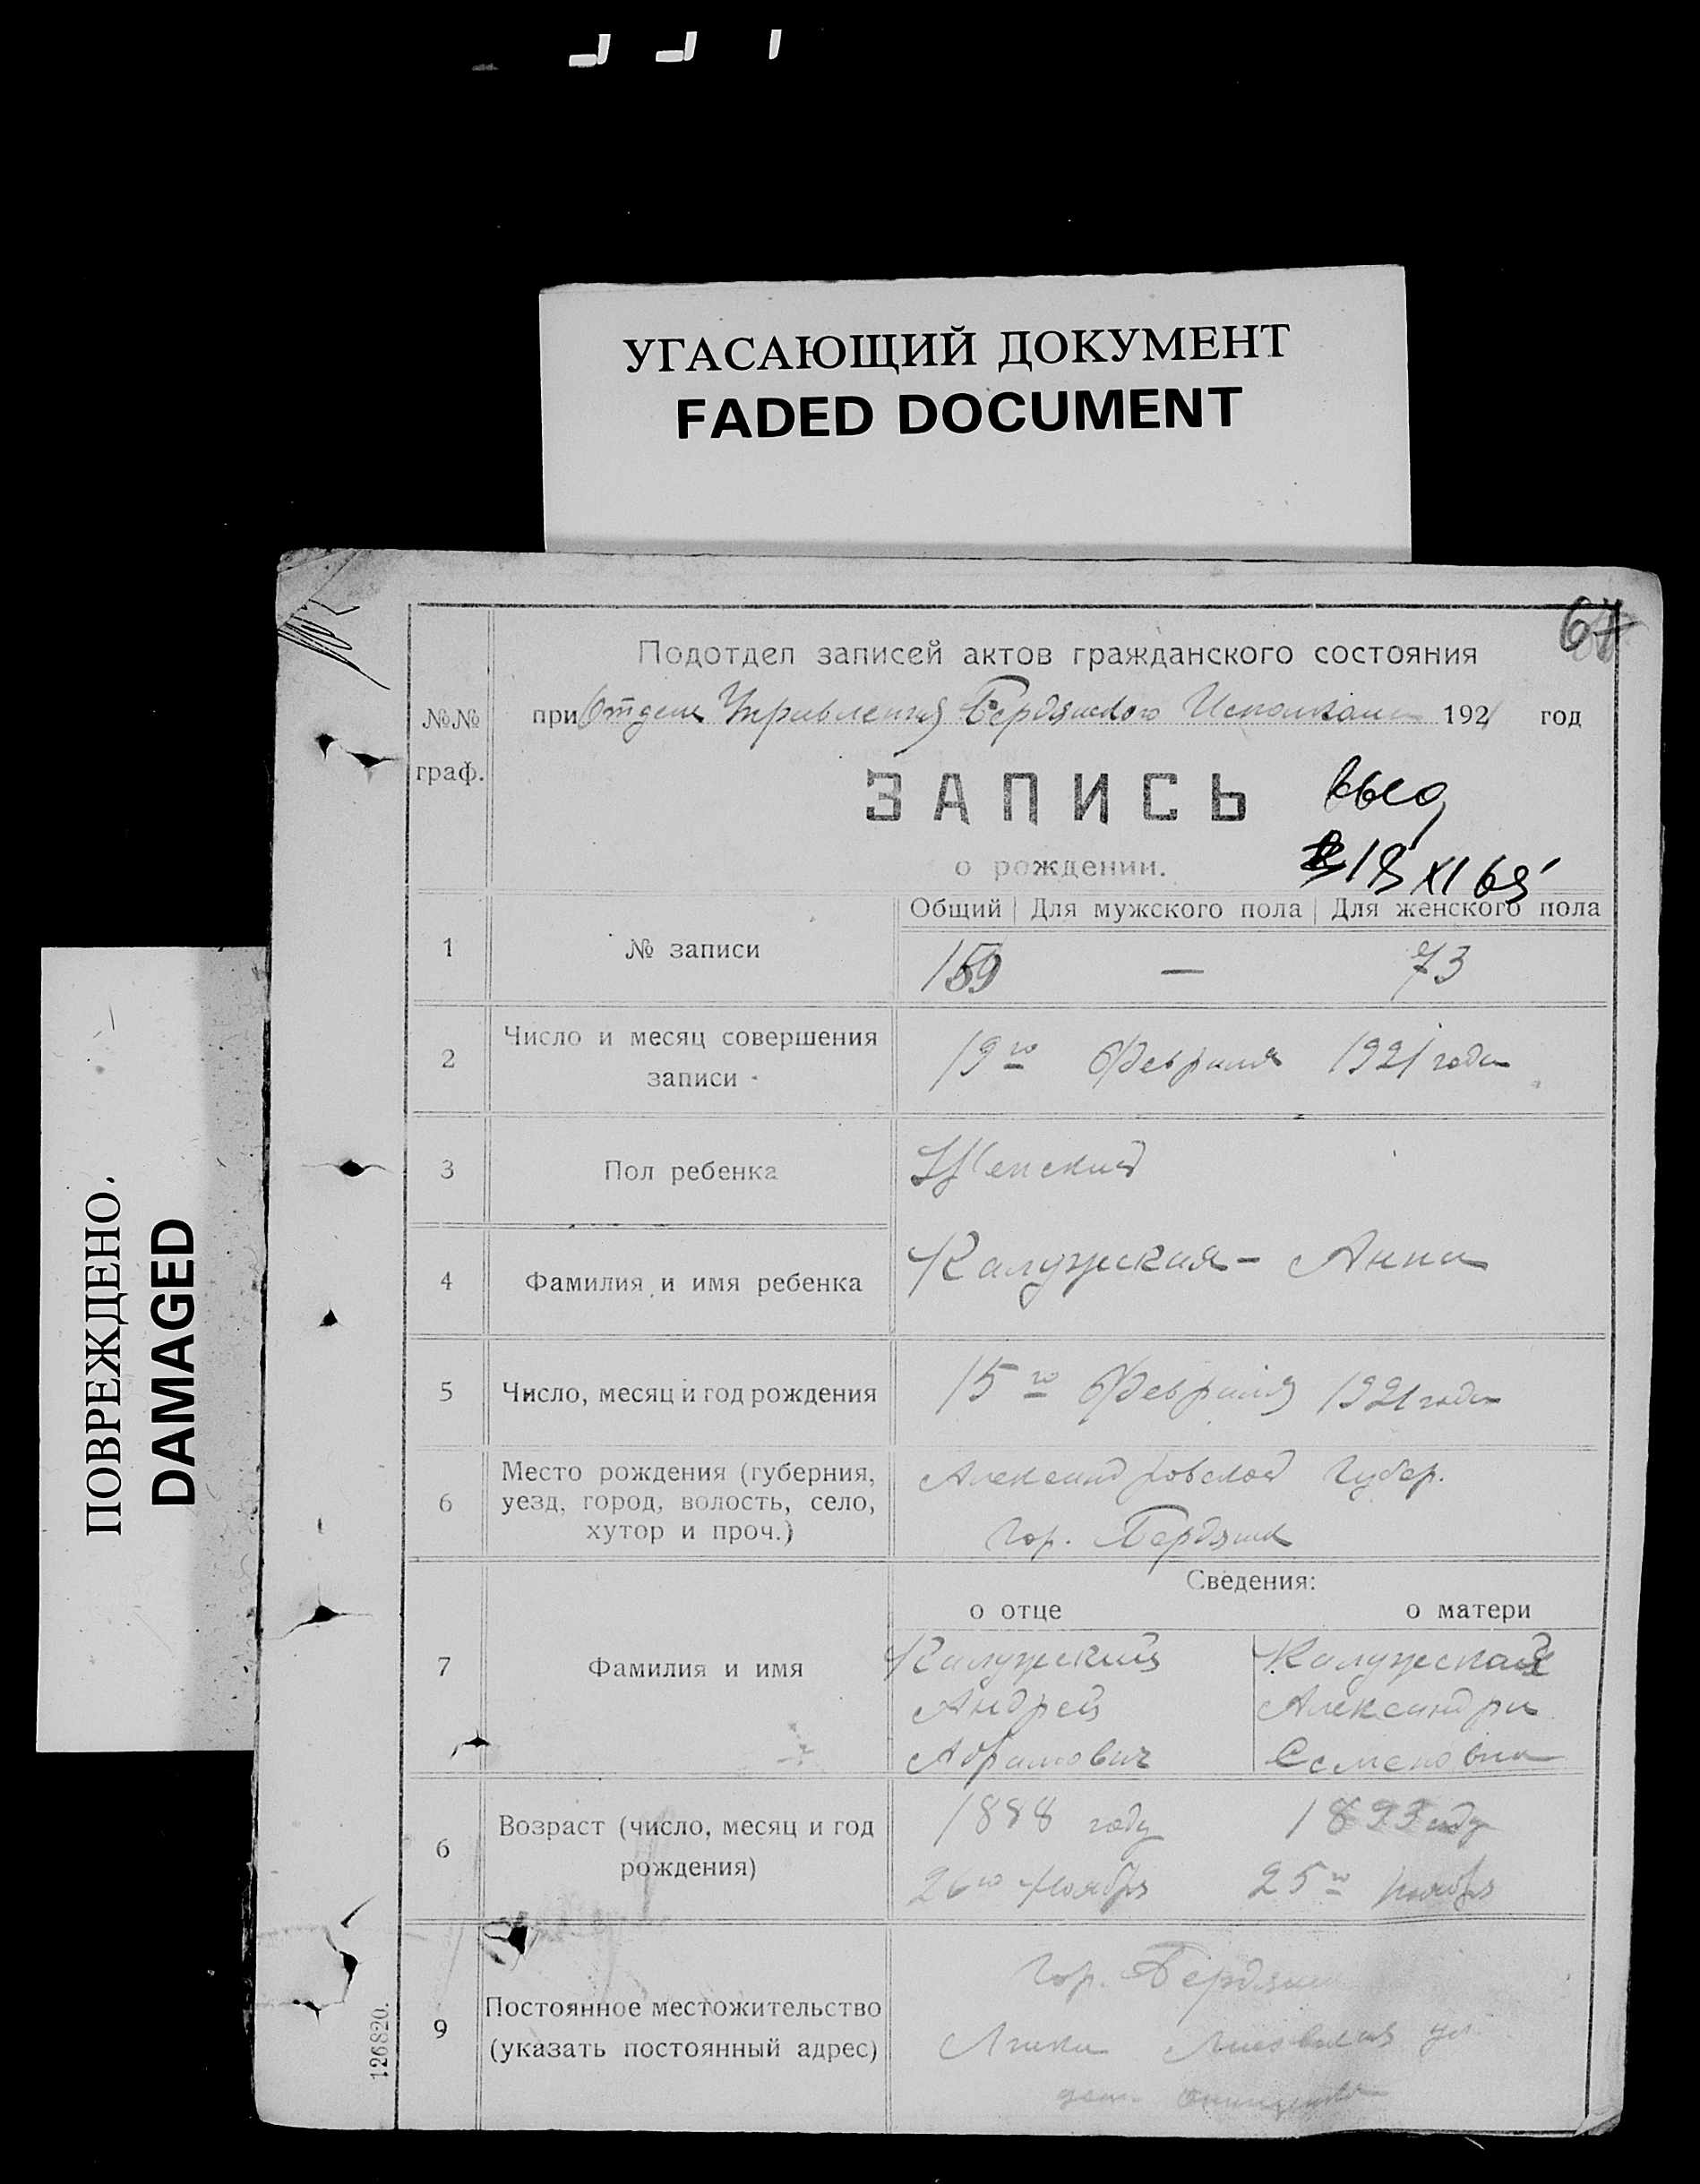 УГАСАЮЩИЙ ДОКУМЕНТ
FADED DOCUMENT
ПОВРЕЖДЕНО.
DAMAGED
67
Подотдел записей актов гражданского состояния
№№ граф.
при Отделе Управления Бердянского Исполкома 1921 год
ЗАПИСЬ
о рождении.
18 XI 65
Общий | Для мужского пола | Для женского пола
1 № записи 159 — 73
2 Число и месяц совершения записи 19го Февраля 1921 года
3 Пол ребенка Женский
4 Фамилия и имя ребенка Калужская - Анна
5 Число, месяц и год рождения 15го Февраля 1921 года
6 Место рождения (губерния, уезд, город, волость, село, хутор и проч.) Александровской Губер.
Гор. Бердянск
Сведения:
о отце о матери
7 Фамилия и имя Калужский Калужская
Андрей Александра
Абрамович Семеновна
6 Возраст (число, месяц и год рождения) 1888 году 1893 году
26го Ноября 25го ноября
9 Постоянное местожительство (указать постоянный адрес) Гор. Бердянск
ул.
126820.